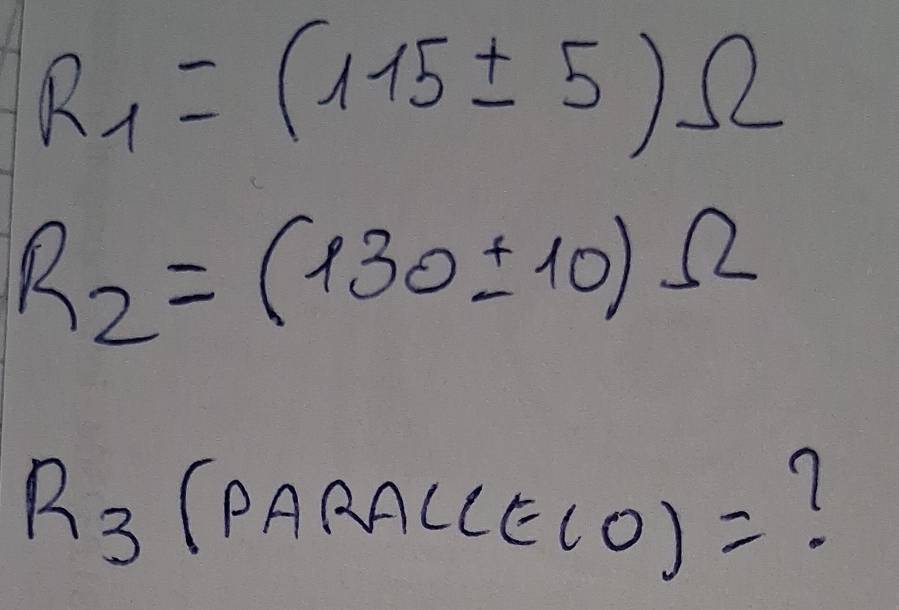 R1 = (115 ± 5) Ω
R2 = (130 ± 10) Ω
R3 (PARALLELO) = ?